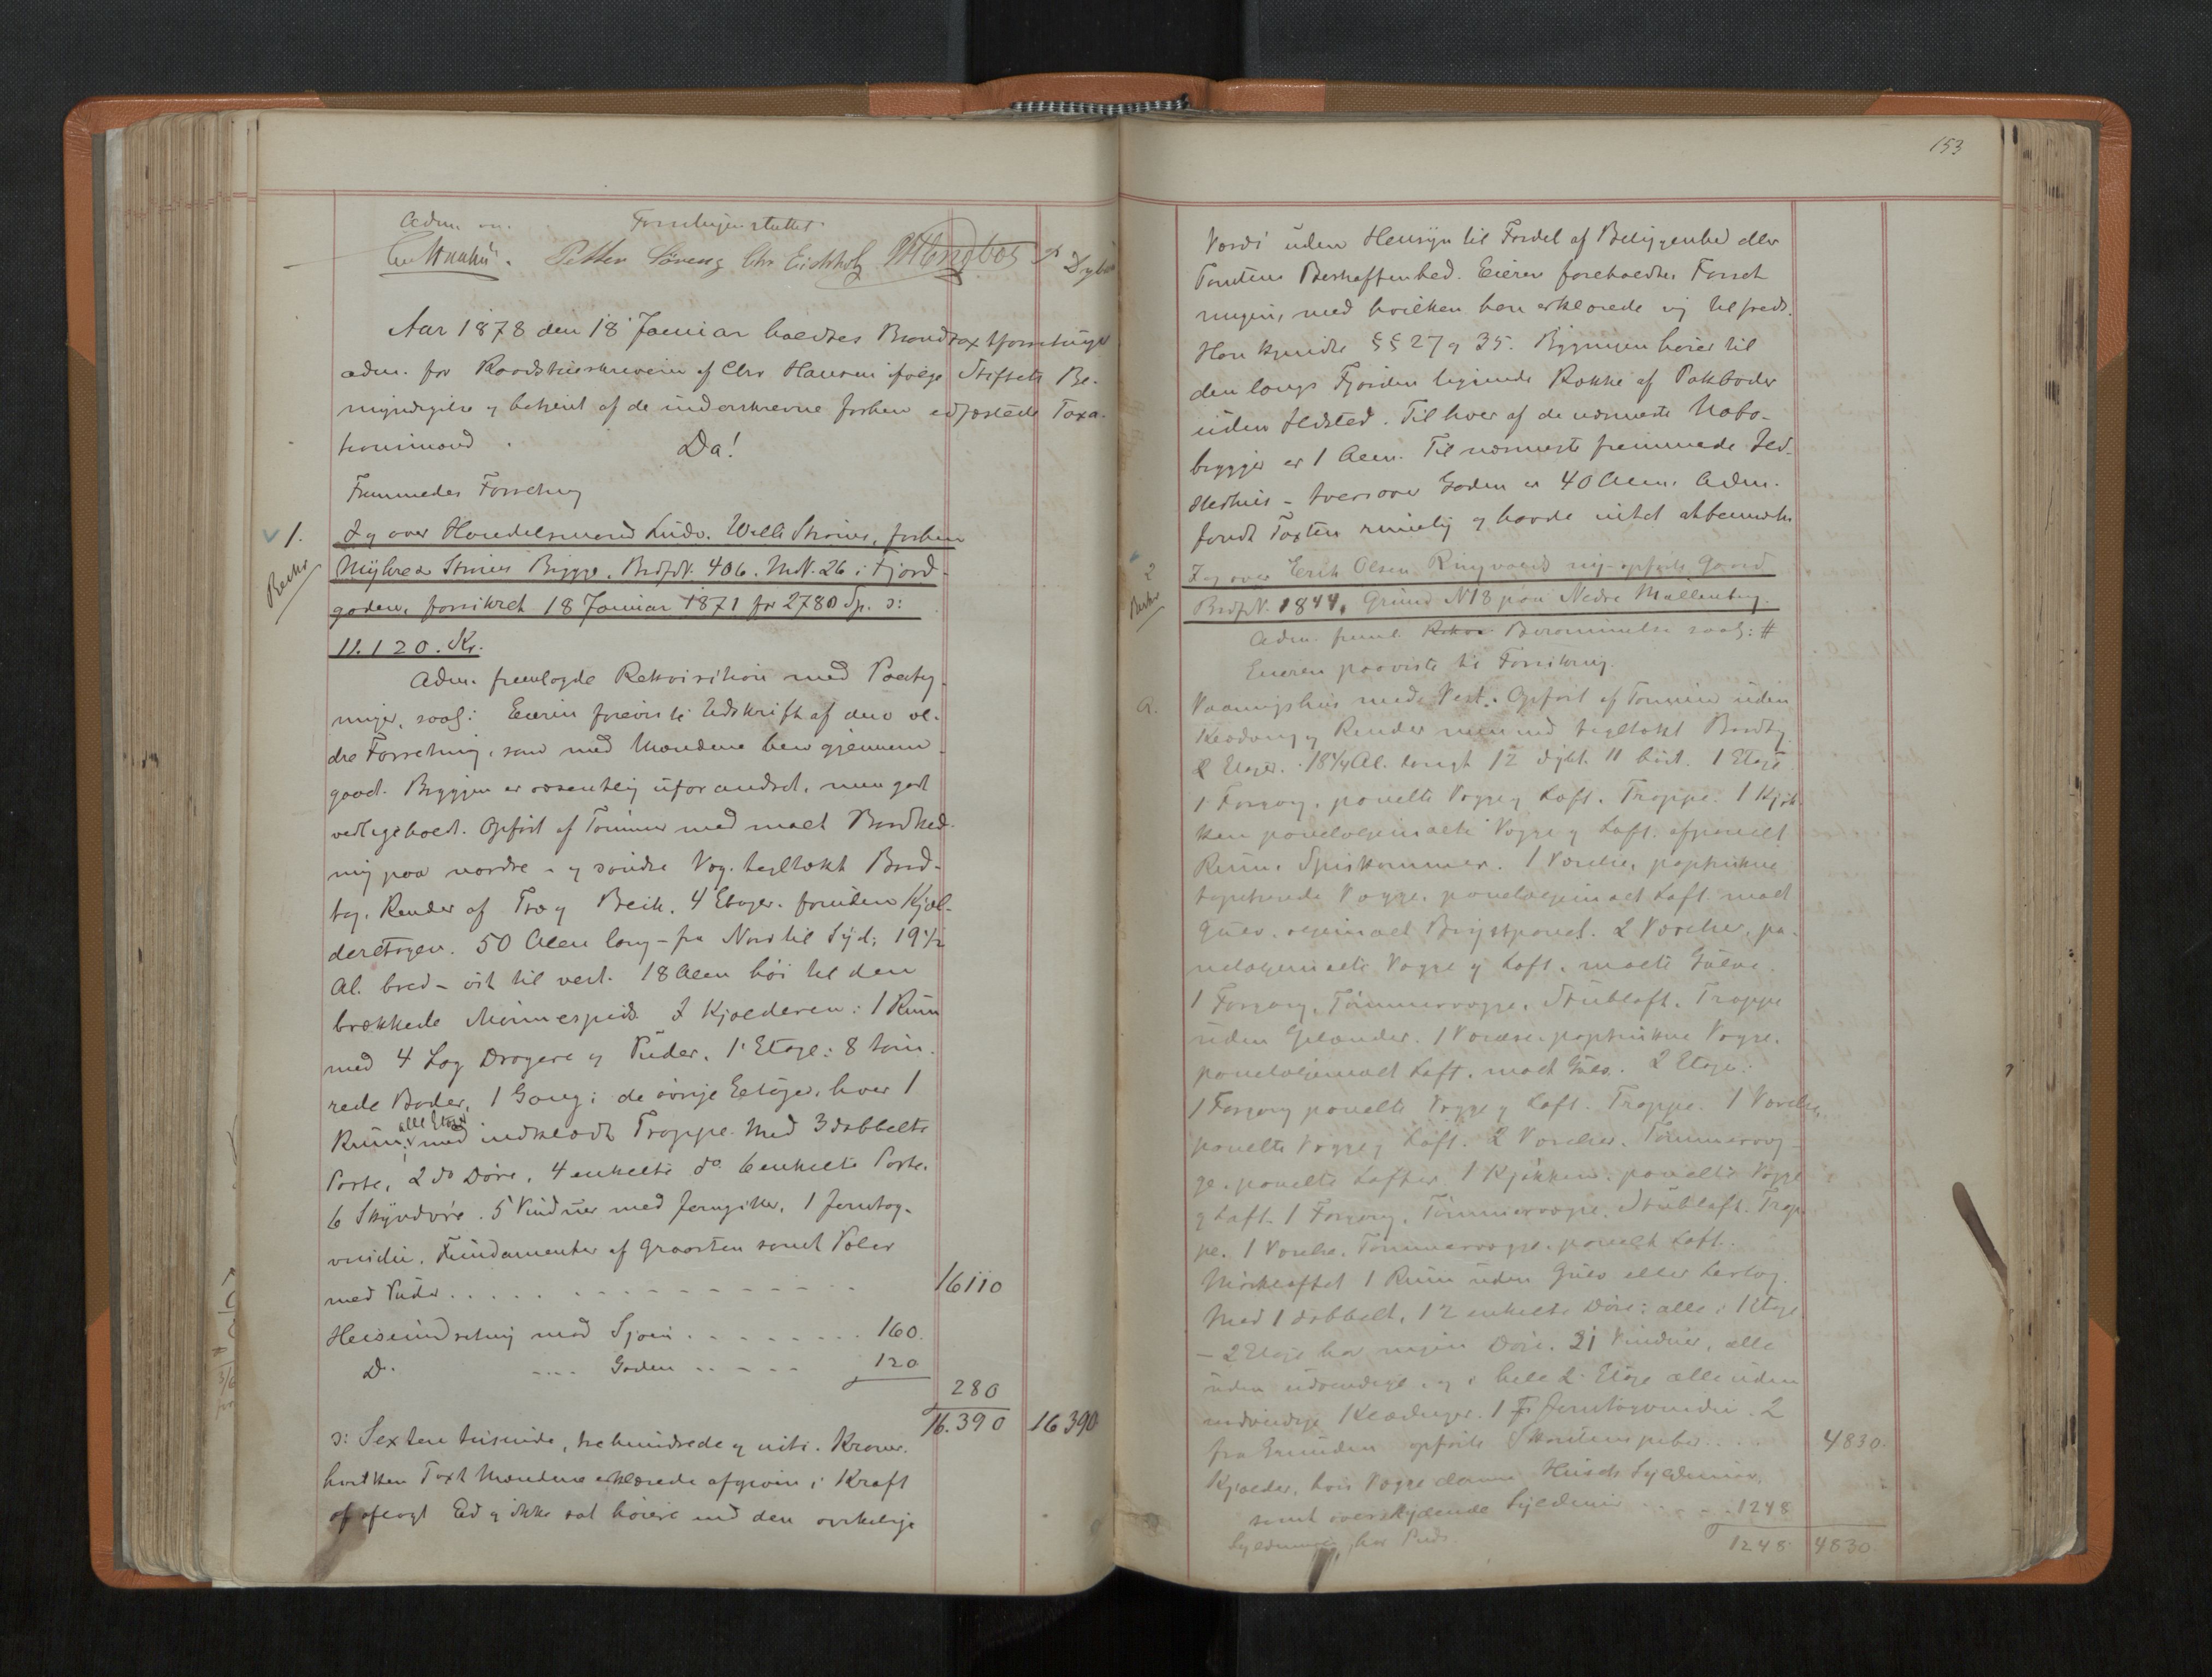 Adm. Forretningen sluttet.
Petter Søreng Chr Eichholz
Aar 1878 den 18 Januar holdtes Brandtaxtforretninger
adm. for Raadstueskriveren af Chr Hansen ifølge Stiftets Be-
myndigelse og betjent af de underskrevne forhen edfæstede Taxa-
tionsmænd.
Da!
Fremmedes Forretning
1. I og over Handelsmand Ludv. Strøms, forhen
Bryge, Brdf.N. 406. M.N. 26 i Fjord-
gaden, forsikret 18 Januar 1871 for 2780 Sp. ɔ:
11.120. Kr.
Adm. fremlagde Rekvisition med Paateg-
ninger, saal: Eieren foreviste Udskrift af den æl-
dre Forretning, som med Mændene blev gjennem-
gaaet. Bryggen er væsentlig uforandret, men godt
vedligeholdt. Opført af Tømmer med malt Bordklæd-
ning paa nordre - og søndre Væg. tegltækt Bord-
tag. Render af Træ og Blik. 4 Etager. foruden Kjæl-
deretagen. 50 Alen lang - fra Nord til Syd; 19 1/2
Al. bred - øst til vest. 18 Alen høi til den
brækkede Mønnespids I Kjælderen: 1 Rum
med 4 Lag Dragere og Puder. 1 Etage: 8 tøm-
rede Boder, 1 Gang; de øvrige Etager, hver 1
alle Etager
Rum, med indklædt Trappe. Med 3 dobbelte
Porte, 2 do Døre, 4 enkelte do 6 enkelte Porte.
6 Skyvdøre. 5 Vinduer med Jerngitter, 1 Jerntag-
vindu. Fundamenter af Graasten samt Pæler
med Puder . . . . . 16110
Heiseindretning mod Sjøen . . . . . 160.
Do. .... Gaden . . . . 120
280
16.390 16390
ɔ: Sexten tusinde, trehundrede og niti. Kroner.
hvilken Taxt Mændene erklærede afgiven i Kraft
af aflagt Ed og ikke sat høiere end den virkelige
153
Værdi uden Hensyn til Fordel af Beliggenhed eller
Tomtens Beskaffenhed. Eieren foreholdtes Forret-
ningen, med hvilken han erklærede sig tilfreds.
Han kjendte §§ 27 og 35. Bygningen hører til
den langs Fjorden liggende Række af Pakboder
uden Ildsted. Til hver af de nærmeste Nabo-
brygger er 1 Alen. Til nærmeste fremmede Ild-
stedhus - tversover Gaden er 40 Alen. Adm.
fandt Taxten rimelig og havde intet at bemærke
2 I og over Erik Olsen Ringvolds ny-opførte Gaard
Brdf.N. 1844, Grund N 18 paa Nedre Møllenberg.
Adm. freml. Berammelse saal: #
Eieren paaviste til Forsikring.
a. Vaaningshus mod Vest. Opført af Tømmer uden
Klædning og Render med tegltækt Bordtag
2 Etager. 18 1/4 Al. langt 12 dybt. 11 høit. 1 Etage
1 Forgang, panelte Vægge og Loft. Trappe. 1 Kjøk-
ken paneloljemalte Vægge og Loft. afpanelt
Rum, Spiskammer. 1 Værelse, papstrukne
tapetserede Vægge, paneloljemalt Loft. malt
Gulv. oljemalt Brystpanel. 2 Værelser, pa-
neloljemalte Vægge og Loft, malte Gulve.
1 Forgang, Tømmervægge, Stubloft. Trappe
uden Gelænder. 1 Værelse papstrukne Vægge.
paneloljemalt Loft. malt Gulv. 2 Etage:
1 Forgang panelte Vægge og Loft. Trappe. 1 Værelse,
panelte Vægge og Loft. 2 Værelser. Tømmervæg-
ge. panelte Lofter. 1 Kjøkken. panelte Vægge
og Loft. 1 Forgang. Tømmervægge. Stubloft. Trap-
pe. 1 Værelse. Tømmervægge. panelt Loft.
Mørkloftet 1 Rum uden Gulv eller
Med 1 dobbelt, 12 enkelte Døre: alle i 1 Etage
- 2 Etage har ingen Døre. 21 Vinduer, alle
uden udvendige, og i hele 2 Etage alle uden
indvendige Klædninger. 1 Jerntagvindu. 2
fra Grunden opførte Skorstenspiber . . . 4830.
Kjælder, hvis Vægge danne Husets Syldmur,
samt overskydende Syldmur . . . 1248
Syldmuren har Puds.
1248 4830.